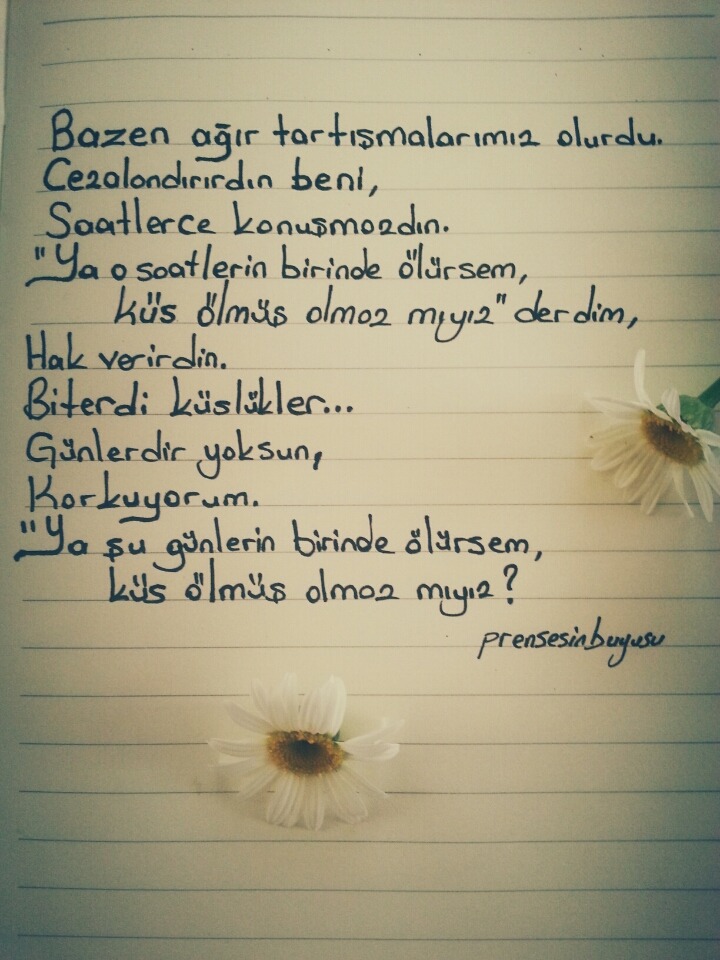 Bazen ağır tartışmalarımız olurdu.
Cezalandırırdın beni,
Saatlerce konuşmazdın.
"Ya o saatlerin birinde ölürsem,
küs ölmüş olmaz mıyız" derdim,
Hak verirdin.
Biterdi küslükler...
Günlerdir yoksun,
Korkuyorum.
"Ya şu günlerin birinde ölürsem,
küs ölmüş olmaz mıyız?
prensesinbuyusu